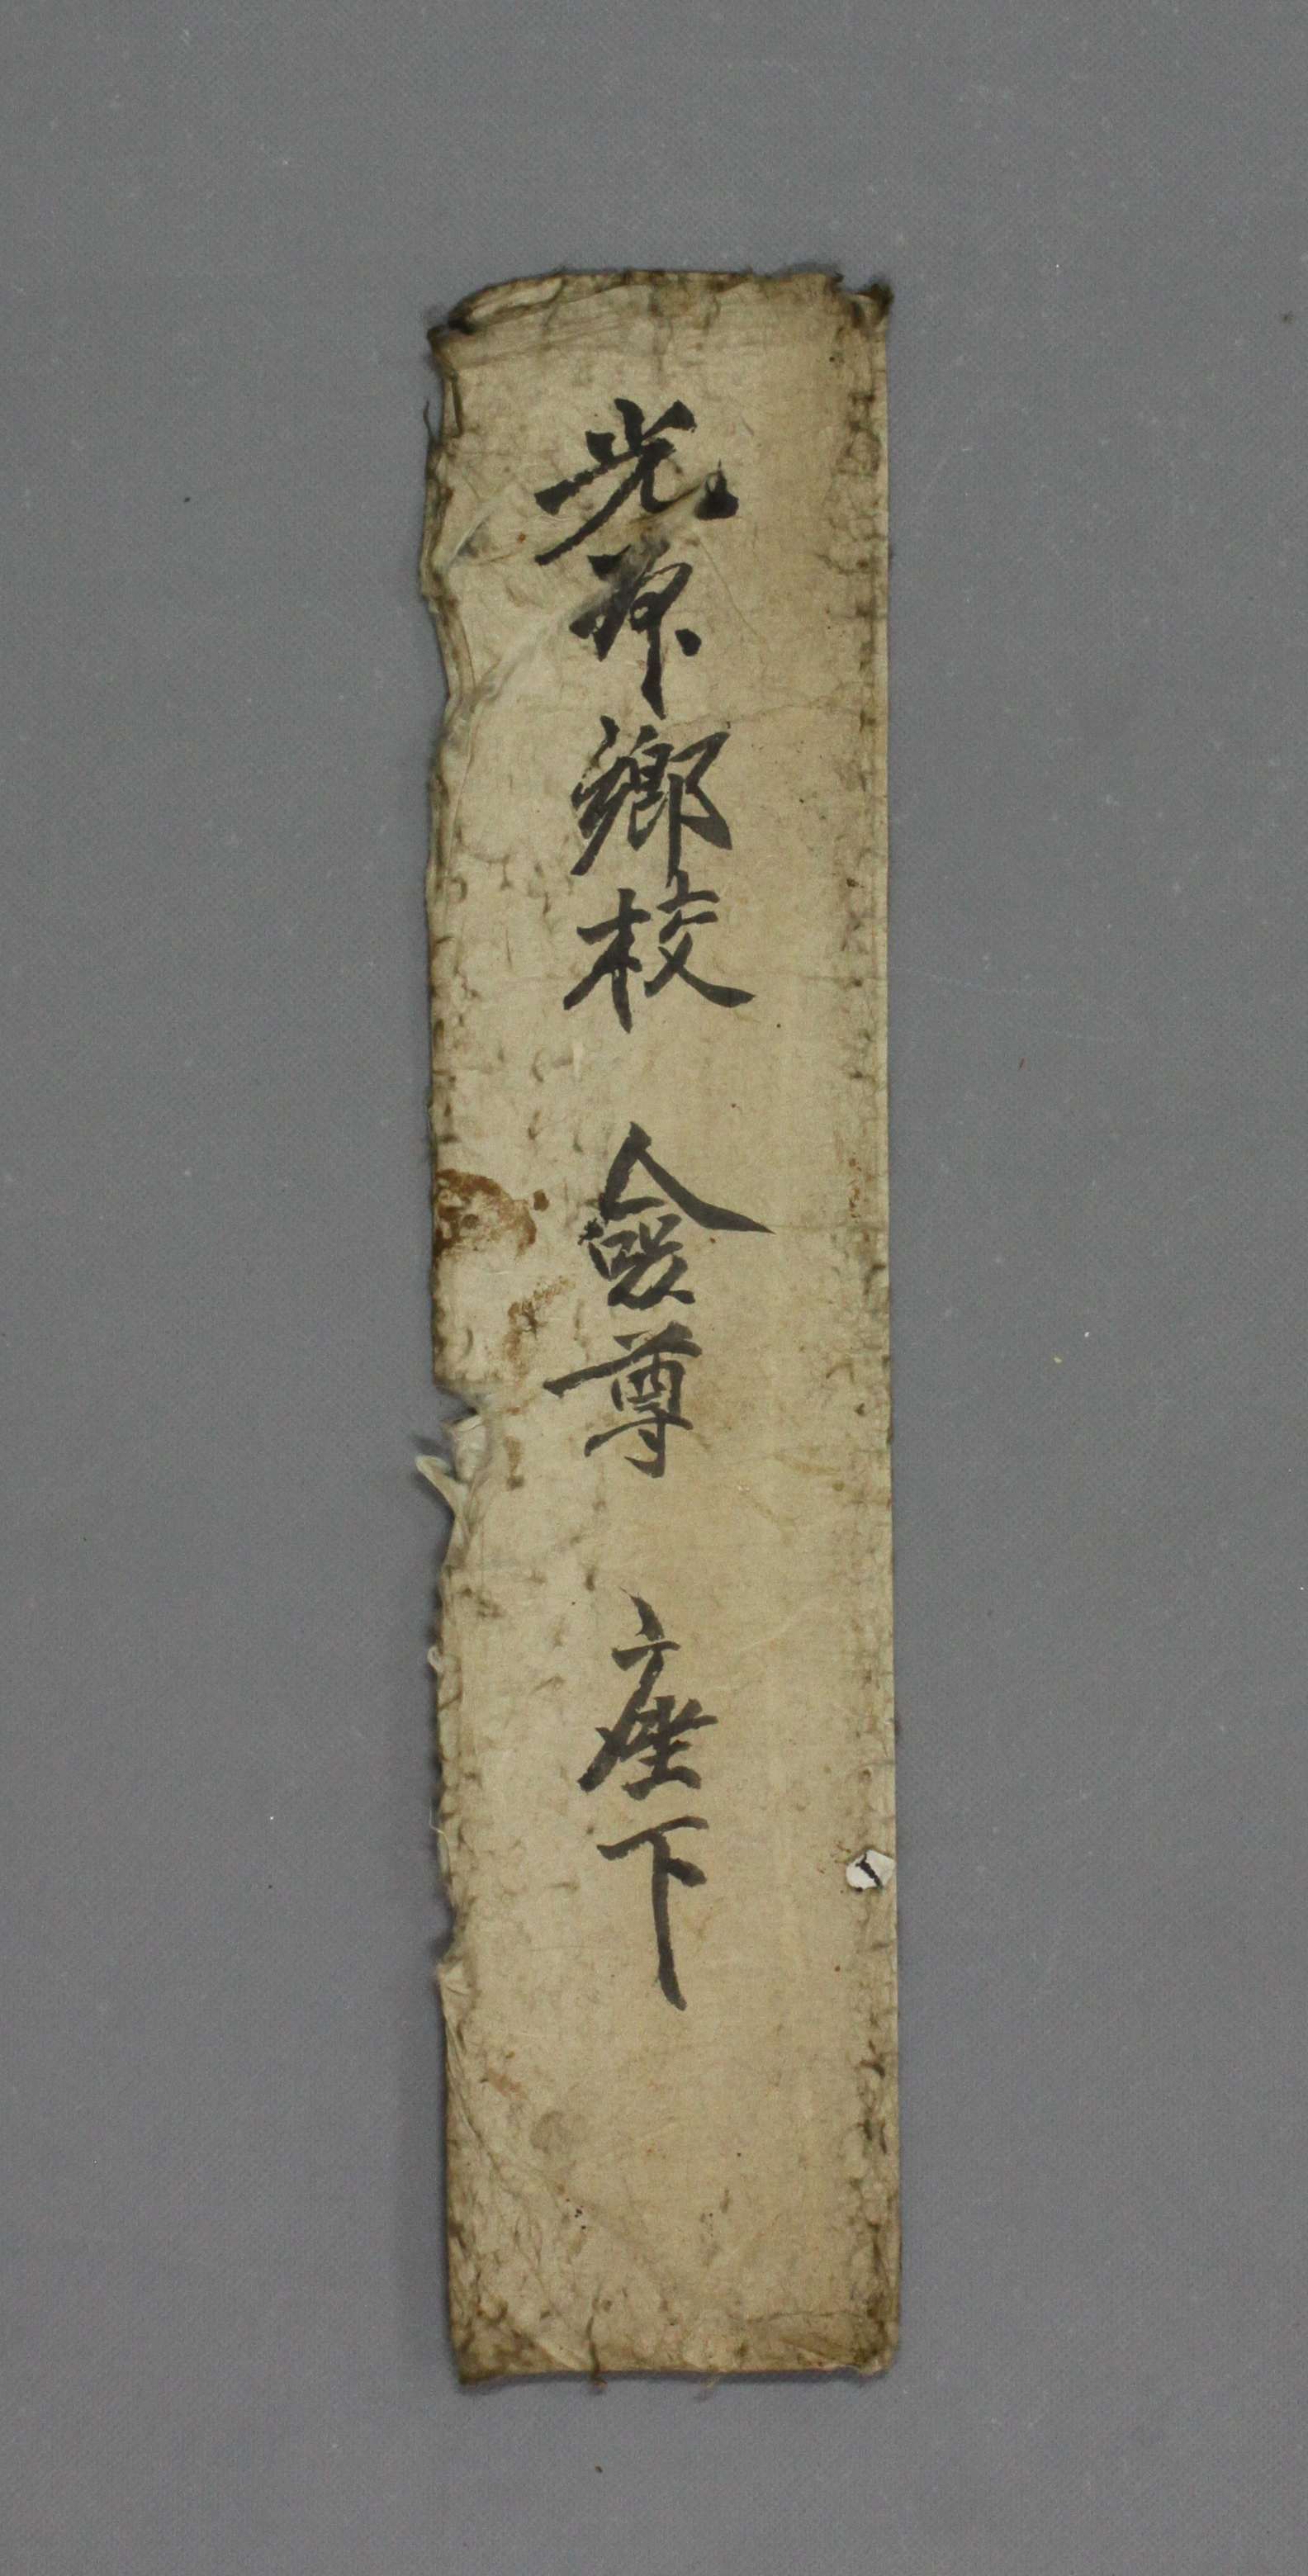 光原鄕校 僉尊 座下